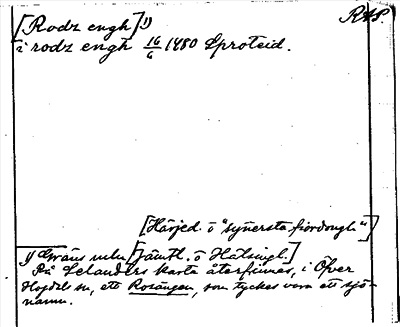 [Rodz engh]1)
RAP
i rodz engh 16/6 1480 Sproteid.
[Härjed. o "synersta fiordongh"]
1) Gräns mln [Jämtl. o Hälsingl.]
På Selanders karta återfinnes, i Öfver
Hogdal sn, ett Rosången, som tyckes vara ett sjö-
namn.